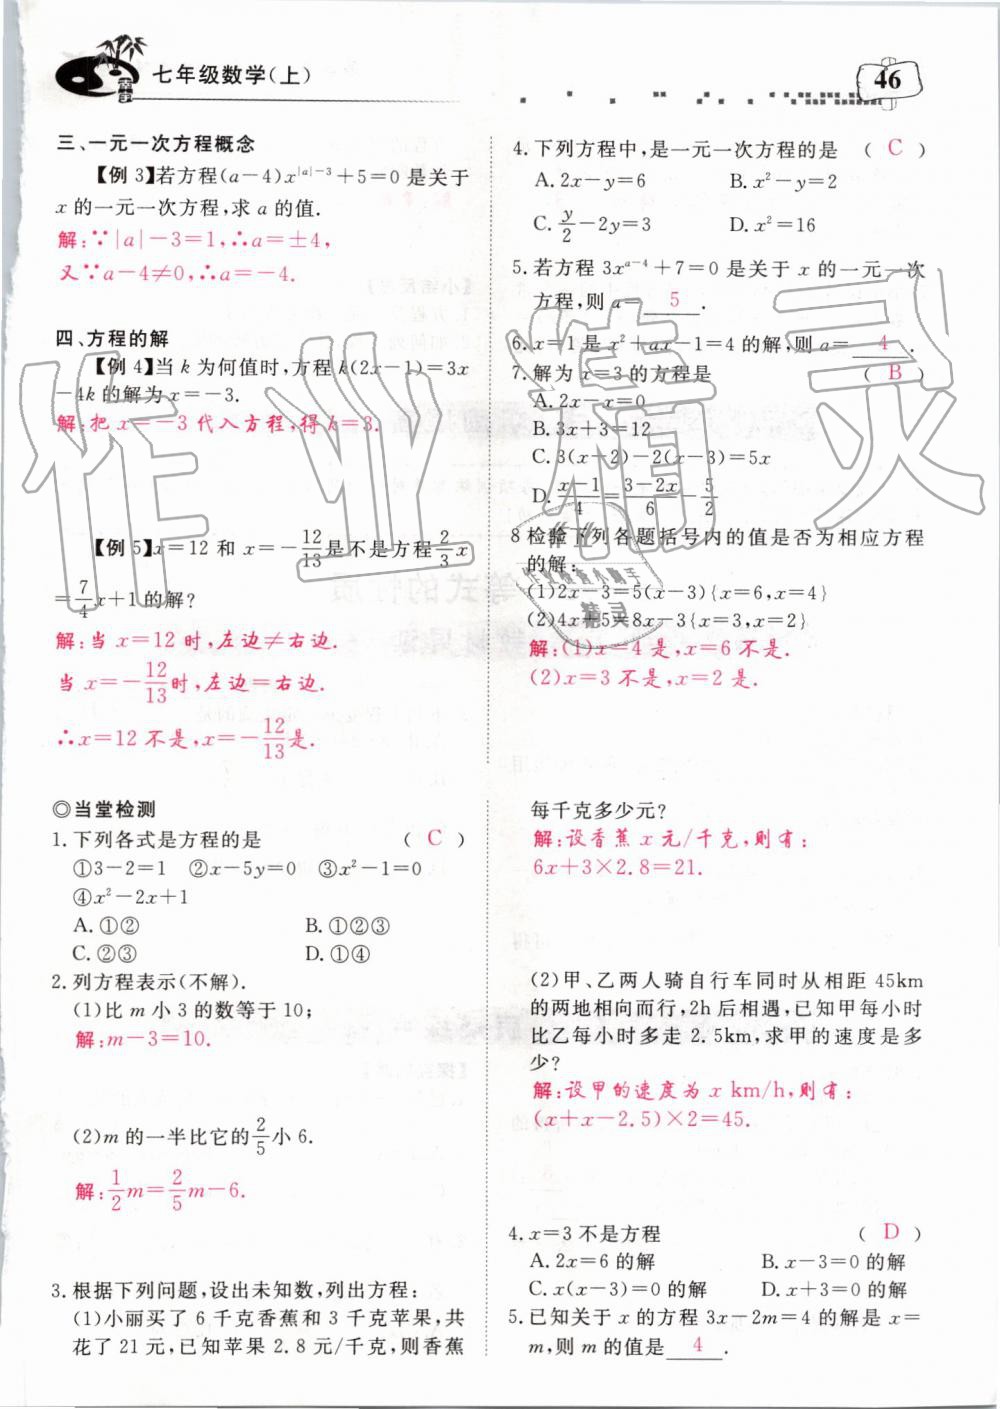 七年级数学(上)
46
三、一元一次方程概念
【例 3】若方程(a-4)x^{|a|-3}+5=0 是关于
x 的一元一次方程,求 a 的值.
解:∵|a|-3=1,∴a=±4,
又∵a-4≠0,∴a=-4.
四、方程的解
【例 4】当 k 为何值时,方程 k(2x-1)=3x
-4k 的解为 x=-3.
解:把 x=-3 代入方程,得 k=3.
【例 5】x=12 和 x=-12/13 是不是方程 2/3 x
=7/4 x+1 的解?
解:当 x=12 时,左边≠右边.
当 x=-12/13 时,左边=右边.
∴x=12 不是,x=-12/13 是.
4.下列方程中,是一元一次方程的是 ( C )
A.2x-y=6 B.x²-y=2
C.y/2-2y=3 D.x²=16
5.若方程 3x^{a-4}+7=0 是关于 x 的一元一次
方程,则 a= 5 .
6.x=1 是 x²+ax-1=4 的解,则 a= 4 .
7.解为 x=3 的方程是 ( B )
A.2x-x=0
B.3x+3=12
C.3(x-2)-2(x-3)=5x
D.x-1/4=3-2x/6=-5/2
8 检验下列各题括号内的值是否为相应方程
的解:
(1)2x-3=5(x-3){x=6,x=4}
(2)4x+5=8x-3{x=3,x=2}
解:(1)x=4 是,x=6 不是.
(2)x=3 不是,x=2 是.
◎当堂检测
1.下列各式是方程的是 ( C )
①3-2=1 ②x-5y=0 ③x²-1=0
④x²-2x+1
A.①② B.①②③
C.②③ D.①④
2.列方程表示(不解).
(1)比 m 小 3 的数等于 10;
解:m-3=10.
(2)m 的一半比它的 2/5 小 6.
解:1/2 m=2/5 m-6.
3.根据下列问题,设出未知数,列出方程:
(1)小丽买了 6 千克香蕉和 3 千克苹果,共
花了 21 元,已知苹果 2.8 元/千克,则香蕉
每千克多少元?
解:设香蕉 x 元/千克,则有:
6x+3×2.8=21.
(2)甲、乙两人骑自行车同时从相距 45km
的两地相向而行,2h 后相遇,已知甲每小时
比乙每小时多走 2.5km,求甲的速度是多
少?
解:设甲的速度为 x km/h,则有:
(x+x-2.5)×2=45.
4.x=3 不是方程 ( D )
A.2x=6 的解 B.x-3=0 的解
C.x(x-3)=0 的解 D.x+3=0 的解
5.已知关于 x 的方程 3x-2m=4 的解是 x=
m,则 m 的值是 4 .
作业精灵